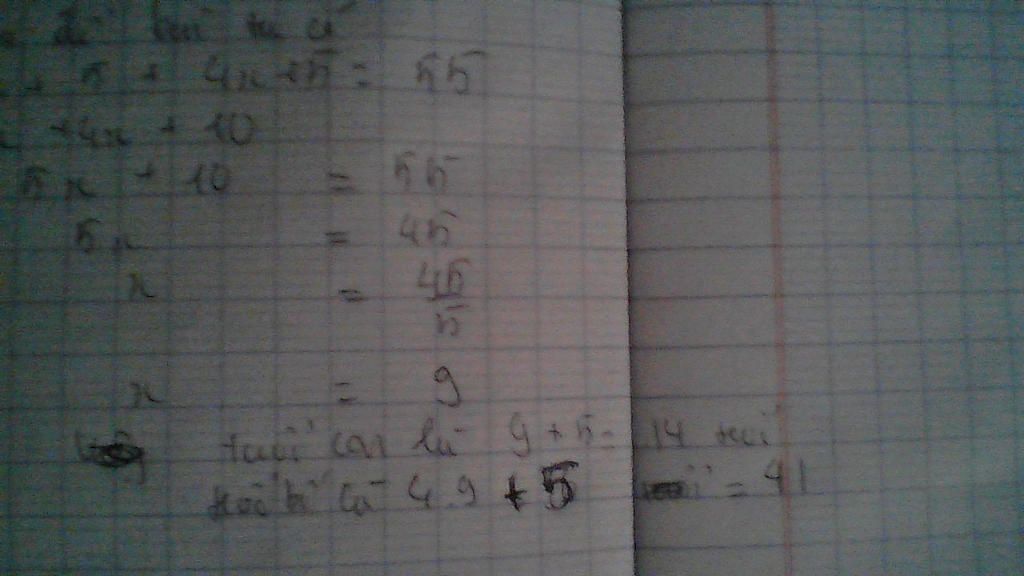 + 5 + 4x + 5 = 55
x + 4x + 10
5x + 10 = 55
5x = 45
x = 45/5
x = 9
tuổi con là 9 + 5 = 14 tuổi
là 4.9 + 5 = 41